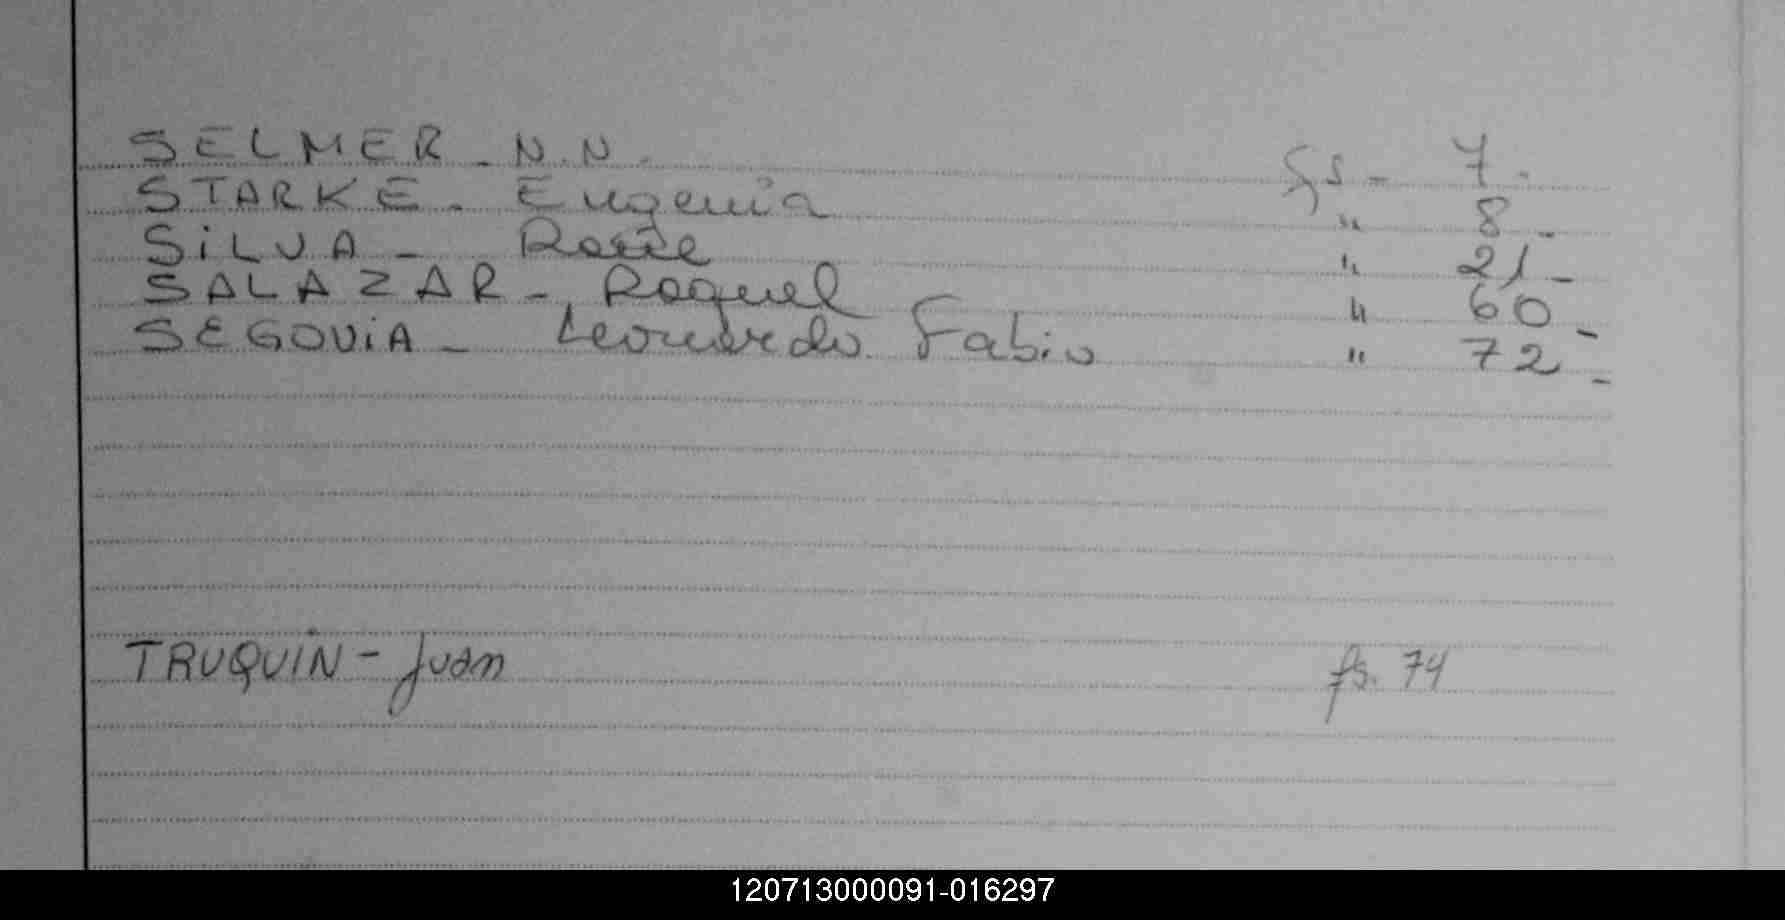 SELMER - N.N. Fs - 7.
STARKE - Eugenia " 8 -
SILVA - " 21 -
SALAZAR - Raquel " 60 -
SEGOVIA - Leonardo Fabio " 72 -
TRUQUIN - Juan fs. 74
120713000091-016297